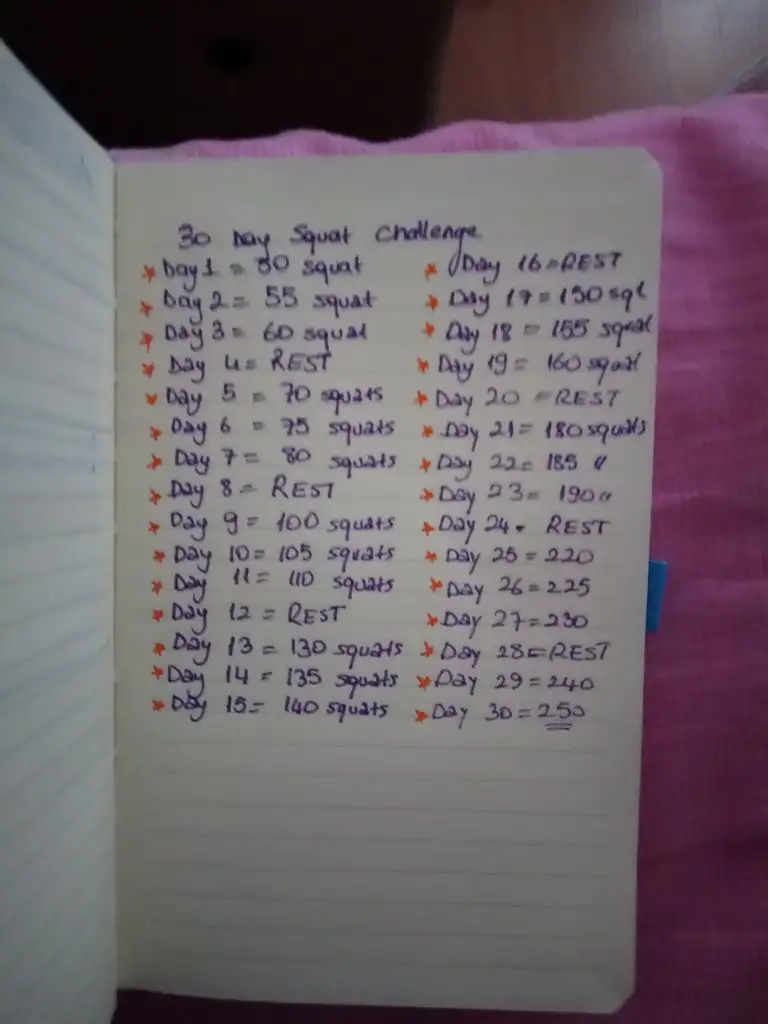 30 Day Squat Challenge
Day 1 = 50 squat
Day 2 = 55 squat
Day 3 = 60 squat
Day 4 = REST
Day 5 = 70 squats
Day 6 = 75 squats
Day 7 = 80 squats
Day 8 = REST
Day 9 = 100 squats
Day 10 = 105 squats
Day 11 = 110 squats
Day 12 = REST
Day 13 = 130 squats
Day 14 = 135 squats
Day 15 = 140 squats
Day 16 = REST
Day 17 = 150 sqt
Day 18 = 155 squat
Day 19 = 160 squat
Day 20 = REST
Day 21 = 180 squats
Day 22 = 185 "
Day 23 = 190 "
Day 24 - REST
Day 25 = 220
Day 26 = 225
Day 27 = 230
Day 28 = REST
Day 29 = 240
Day 30 = 250